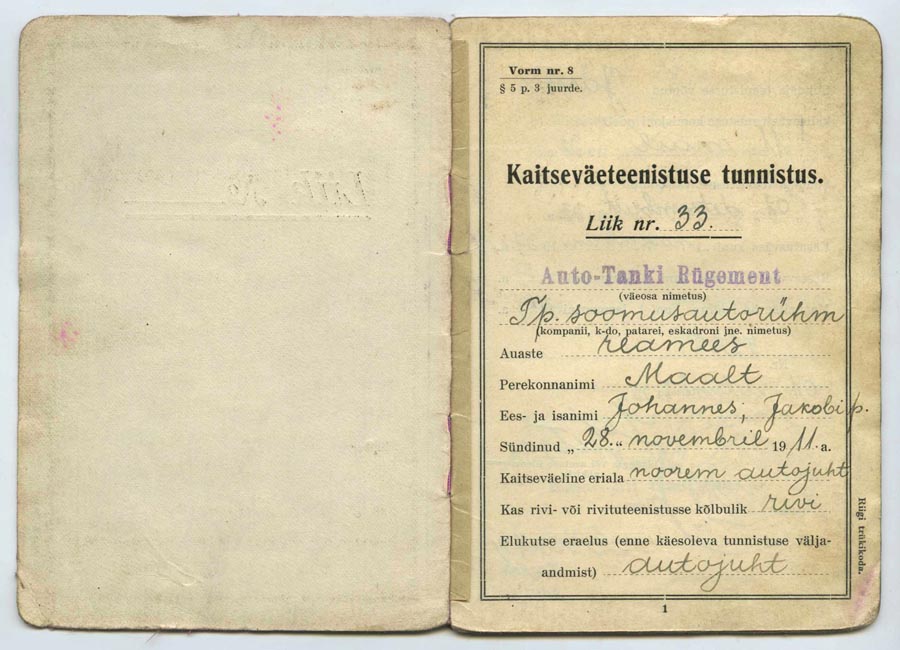 Vorm nr. 8
§ 5 p. 3 juurde.
Kaitseväeteenistuse tunnistus.
Liik nr. 33.
Auto-Tanki Rügement
(väeosa nimetus)
Tp. soomusautorühm
(kompanii, k-do, patarei, eskadroni jne. nimetus)
Auaste reamees
Perekonnanimi Maalt
Ees- ja isanimi Johannes, Jakobi p.
Sündinud „28.“ novembril 1911. a.
Kaitseväeline eriala noorem autojuht
Kas rivi- või rivituteenistusse kõlbulik rivi
Elukutse eraelus (enne käesoleva tunnistuse välja-
andmist) autojuht
1
Riigi trükikoda.